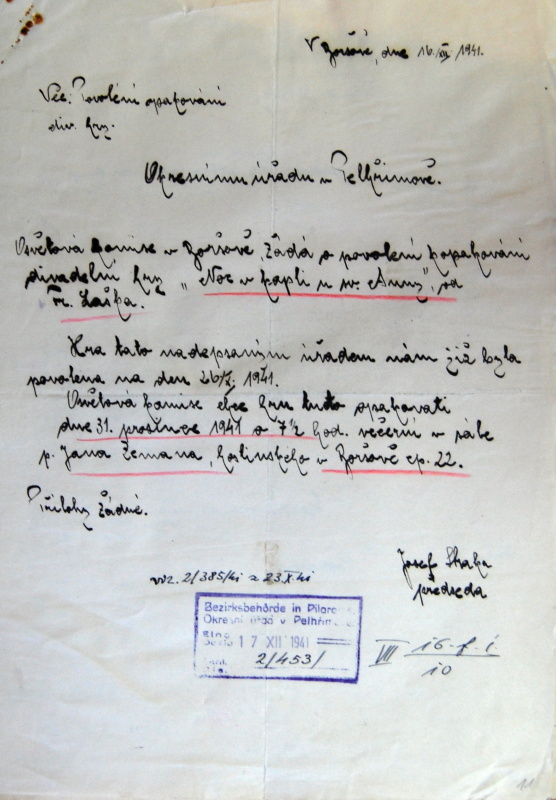 V Zoršově, dne 16.XII.1941.
Věc: Povolení opakování
div. hry.
Okresnímu úřadu v Pelhřimově.
Osvětová komise v Zoršově, žádá o povolení k opakování
divadelní hry „Noc v kapli u sv. Anny", od
Fr. Laška.
Hra tato nadepsaným úřadem nám již byla
povolena na den 26/X. 1941.
Osvětová komise chce hru tuto opakovati
dne 31. prosince 1941 o 7½ hod. večerní v sále
p. Jana Zemana, hostinského v Zoršově čp. 22.
Přílohy žádné.
Josef
předseda
viz. 2/385/ki z 23.X.
Bezirksbehörde in
Okresní úřad v
17 XII 1941
2/453/
VII
10
11